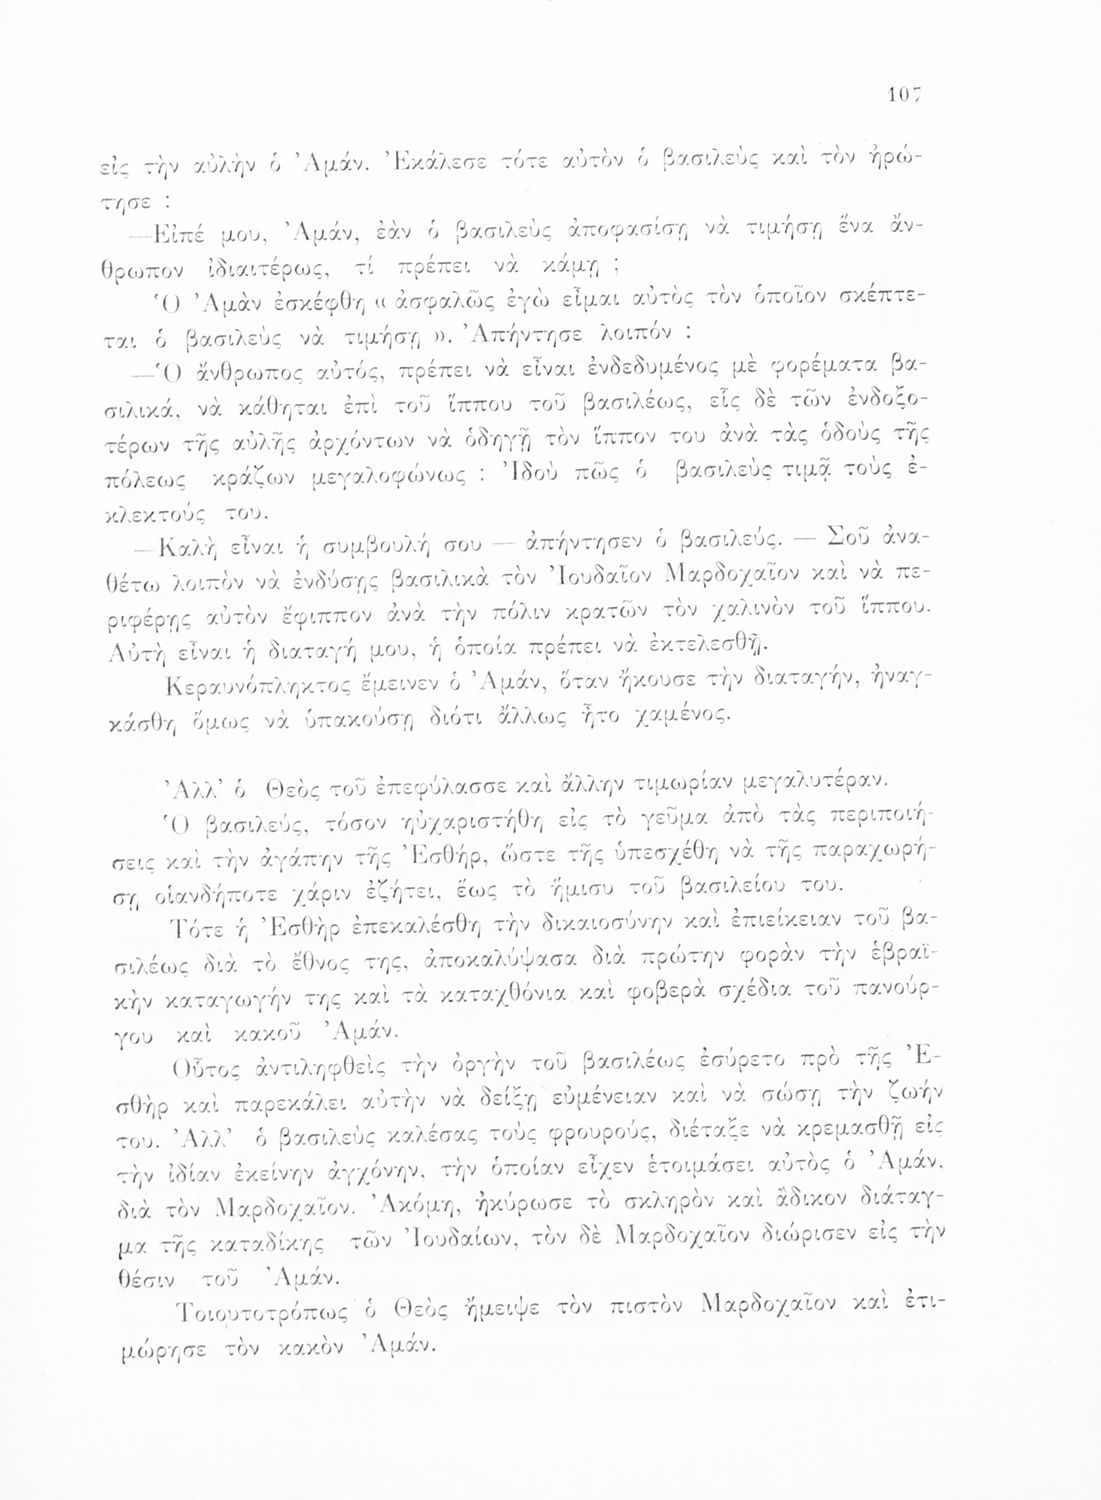 107
εἰς τὴν αὐλὴν ὁ ᾿Αμάν. ᾿Εκάλεσε τότε αὐτὸν ὁ βασιλεὺς καὶ τὸν ἠρώ-
τησε :
—Εἰπέ μου, ᾿Αμάν, ἐὰν ὁ βασιλεὺς ἀποφασίσῃ νὰ τιμήσῃ ἕνα ἄν-
θρωπον ἰδιαιτέρως, τί πρέπει νὰ κάμῃ ;
῾Ο ᾿Αμὰν ἐσκέφθη « ἀσφαλῶς ἐγὼ εἶμαι αὐτὸς τὸν ὁποῖον σκέπτε-
ται ὁ βασιλεὺς νὰ τιμήσῃ ». ᾿Απήντησε λοιπόν :
—῾Ο ἄνθρωπος αὐτός, πρέπει νὰ εἶναι ἐνδεδυμένος μὲ φορέματα βα-
σιλικά, νὰ κάθηται ἐπὶ τοῦ ἵππου τοῦ βασιλέως, εἷς δὲ τῶν ἐνδοξο-
τέρων τῆς αὐλῆς ἀρχόντων νὰ ὁδηγῇ τὸν ἵππον του ἀνὰ τὰς ὁδοὺς τῆς
πόλεως κράζων μεγαλοφώνως : ᾿Ιδοὺ πῶς ὁ βασιλεὺς τιμᾷ τοὺς ἐ-
κλεκτούς του.
— Καλὴ εἶναι ἡ συμβουλή σου — ἀπήντησεν ὁ βασιλεύς. — Σοῦ ἀνα-
θέτω λοιπὸν νὰ ἐνδύσῃς βασιλικὰ τὸν ᾿Ιουδαῖον Μαρδοχαῖον καὶ νὰ πε-
ριφέρῃς αὐτὸν ἔφιππον ἀνὰ τὴν πόλιν κρατῶν τὸν χαλινὸν τοῦ ἵππου.
Αὐτὴ εἶναι ἡ διαταγή μου, ἡ ὁποία πρέπει νὰ ἐκτελεσθῇ.
Κεραυνόπληκτος ἔμεινεν ὁ ᾿Αμάν, ὅταν ἤκουσε τὴν διαταγήν, ἠναγ-
κάσθη ὅμως νὰ ὑπακούσῃ διότι ἄλλως ἦτο χαμένος.
᾿Αλλ᾿ ὁ Θεὸς τοῦ ἐπεφύλασσε καὶ ἄλλην τιμωρίαν μεγαλυτέραν.
῾Ο βασιλεύς, τόσον ηὐχαριστήθη εἰς τὸ γεῦμα ἀπὸ τὰς περιποιή-
σεις καὶ τὴν ἀγάπην τῆς ᾿Εσθήρ, ὥστε τῆς ὑπεσχέθη νὰ τῆς παραχωρή-
σῃ οἱανδήποτε χάριν ἐζήτει, ἕως τὸ ἥμισυ τοῦ βασιλείου του.
Τότε ἡ ᾿Εσθὴρ ἐπεκαλέσθη τὴν δικαιοσύνην καὶ ἐπιείκειαν τοῦ βα-
σιλέως διὰ τὸ ἔθνος της, ἀποκαλύψασα διὰ πρώτην φορὰν τὴν ἑβραϊ-
κὴν καταγωγήν της καὶ τὰ καταχθόνια καὶ φοβερὰ σχέδια τοῦ πανούρ-
γου καὶ κακοῦ ᾿Αμάν.
Οὗτος ἀντιληφθεὶς τὴν ὀργὴν τοῦ βασιλέως ἐσύρετο πρὸ τῆς ᾿Ε-
σθὴρ καὶ παρεκάλει αὐτὴν νὰ δείξῃ εὐμένειαν καὶ νὰ σώσῃ τὴν ζωήν
του. ᾿Αλλ᾿ ὁ βασιλεὺς καλέσας τοὺς φρουρούς, διέταξε νὰ κρεμασθῇ εἰς
τὴν ἰδίαν ἐκείνην ἀγχόνην, τὴν ὁποίαν εἶχεν ἑτοιμάσει αὐτὸς ὁ ᾿Αμάν,
διὰ τὸν Μαρδοχαῖον. ᾿Ακόμη, ἠκύρωσε τὸ σκληρὸν καὶ ἄδικον διάταγ-
μα τῆς καταδίκης τῶν ᾿Ιουδαίων, τὸν δὲ Μαρδοχαῖον διώρισεν εἰς τὴν
θέσιν τοῦ ᾿Αμάν.
Τοιουτοτρόπως ὁ Θεὸς ἤμειψε τὸν πιστὸν Μαρδοχαῖον καὶ ἐτι-
μώρησε τὸν κακὸν ᾿Αμάν.